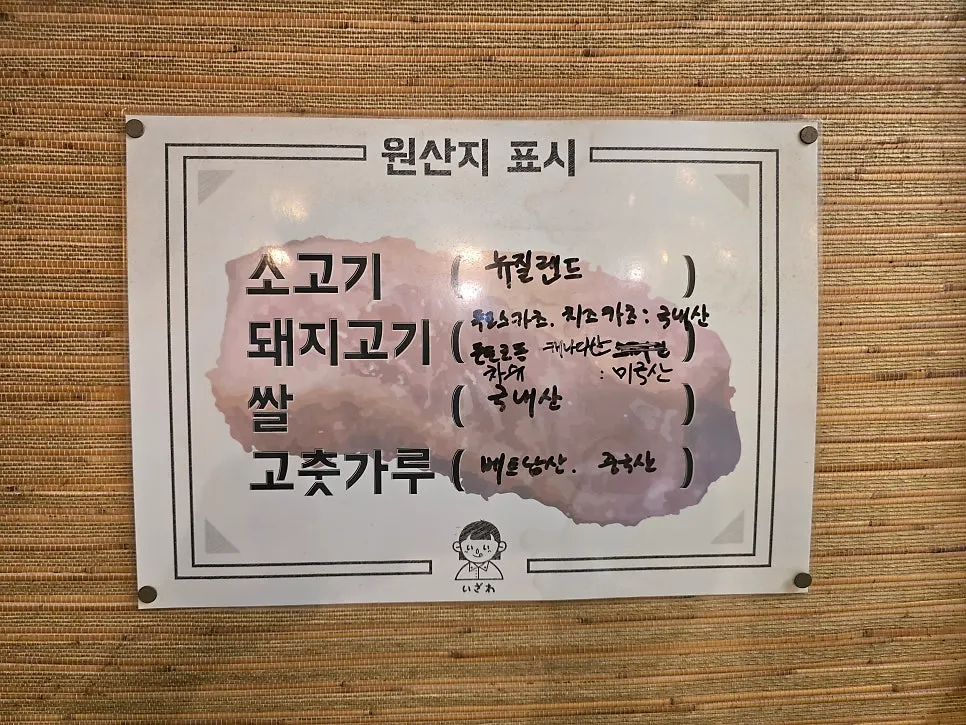 원산지 표시
소고기 ( 뉴질랜드 )
돼지고기 ( 카츠. 치즈카츠: 국내산
캐나다산 )
차슈 : 미국산
쌀 ( 국내산 )
고춧가루 ( 베트남산. )
いざわ